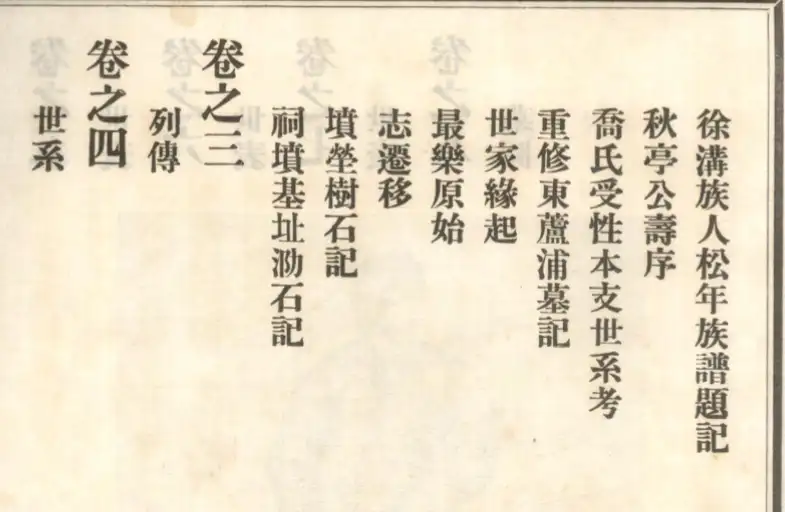 徐溝族人松年族譜題記
秋亭公壽序
喬氏受性本支世系考
重修東蘆浦墓記
世家緣起
最樂原始
志遷移
墳塋樹石記
祠墳基址泐石記
卷之三
列傳
卷之四
世系